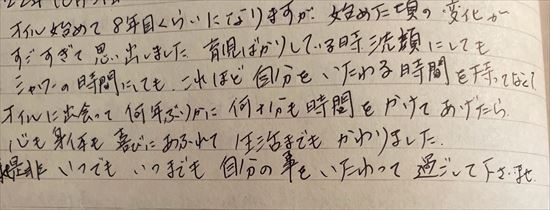 オイル始めて8年目くらいになりますが、始めた頃の変化が
すごすぎて思い出しました 育児ばかりしている時、洗顔にしても
シャワーの時間にしても、これほど自分をいたわる時間を持ってなくて
オイルに出会って何年ぶりかに何十分も時間をかけてあげたら
心も身体も喜びにあふれて生活までもかわりました。
是非いつでもいつまでも自分の事をいたわって過ごして下さいませ